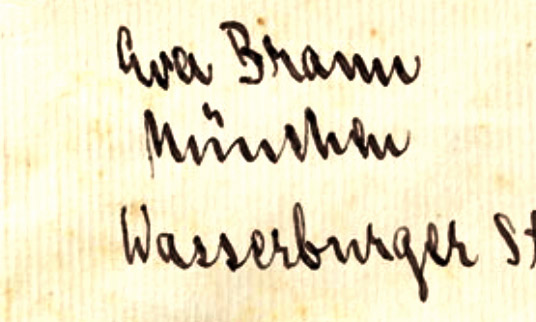 Eva Braun
München
Wasserburger St